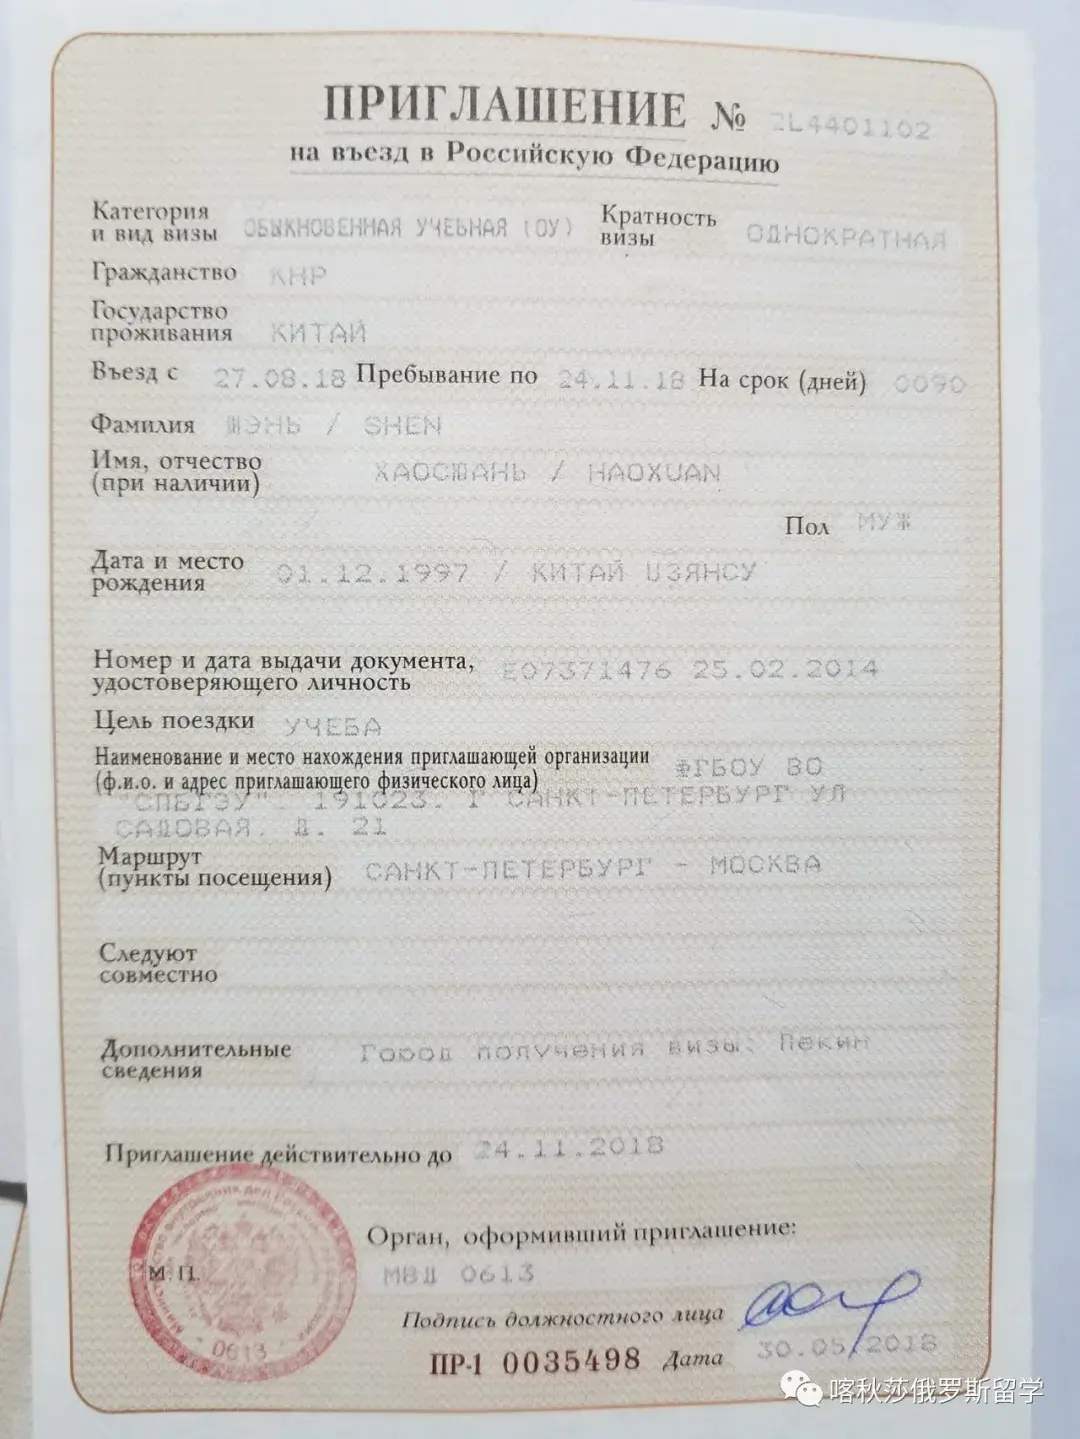 ПРИГЛАШЕНИЕ № 2L4401102
на въезд в Российскую Федерацию
Категория и вид визы ОБЫКНОВЕННАЯ УЧЕБНАЯ (ОУ) Кратность визы ОДНОКРАТНАЯ
Гражданство КНР
Государство
проживания КИТАЙ
Въезд с 27.08.18 Пребывание по 24.11.18 На срок (дней) 0090
Фамилия ШЭНЬ / SHEN
Имя, отчество
(при наличии) ХАОСЮАНЬ / HAOXUAN
Пол МУЖ
Дата и место
рождения 01.12.1997 / КИТАЙ ЦЗЯНСУ
Номер и дата выдачи документа,
удостоверяющего личность E07371476 25.02.2014
Цель поездки УЧЕБА
Наименование и место нахождения приглашающей организации
(ф.и.о. и адрес приглашающего физического лица) ФГБОУ ВО
"СПБГЭУ". 191023. Г САНКТ-ПЕТЕРБУРГ УЛ
САДОВАЯ. Д. 21
Маршрут
(пункты посещения) САНКТ-ПЕТЕРБУРГ - МОСКВА
Следуют
совместно
Дополнительные
сведения Город получения визы: Пекин
Приглашение действительно до 24.11.2018
Орган, оформивший приглашение:
М.П. МВД 0613
Подпись должностного лица
0613
ПР-1 0035498 Дата 30.05.2018
喀秋莎俄罗斯留学